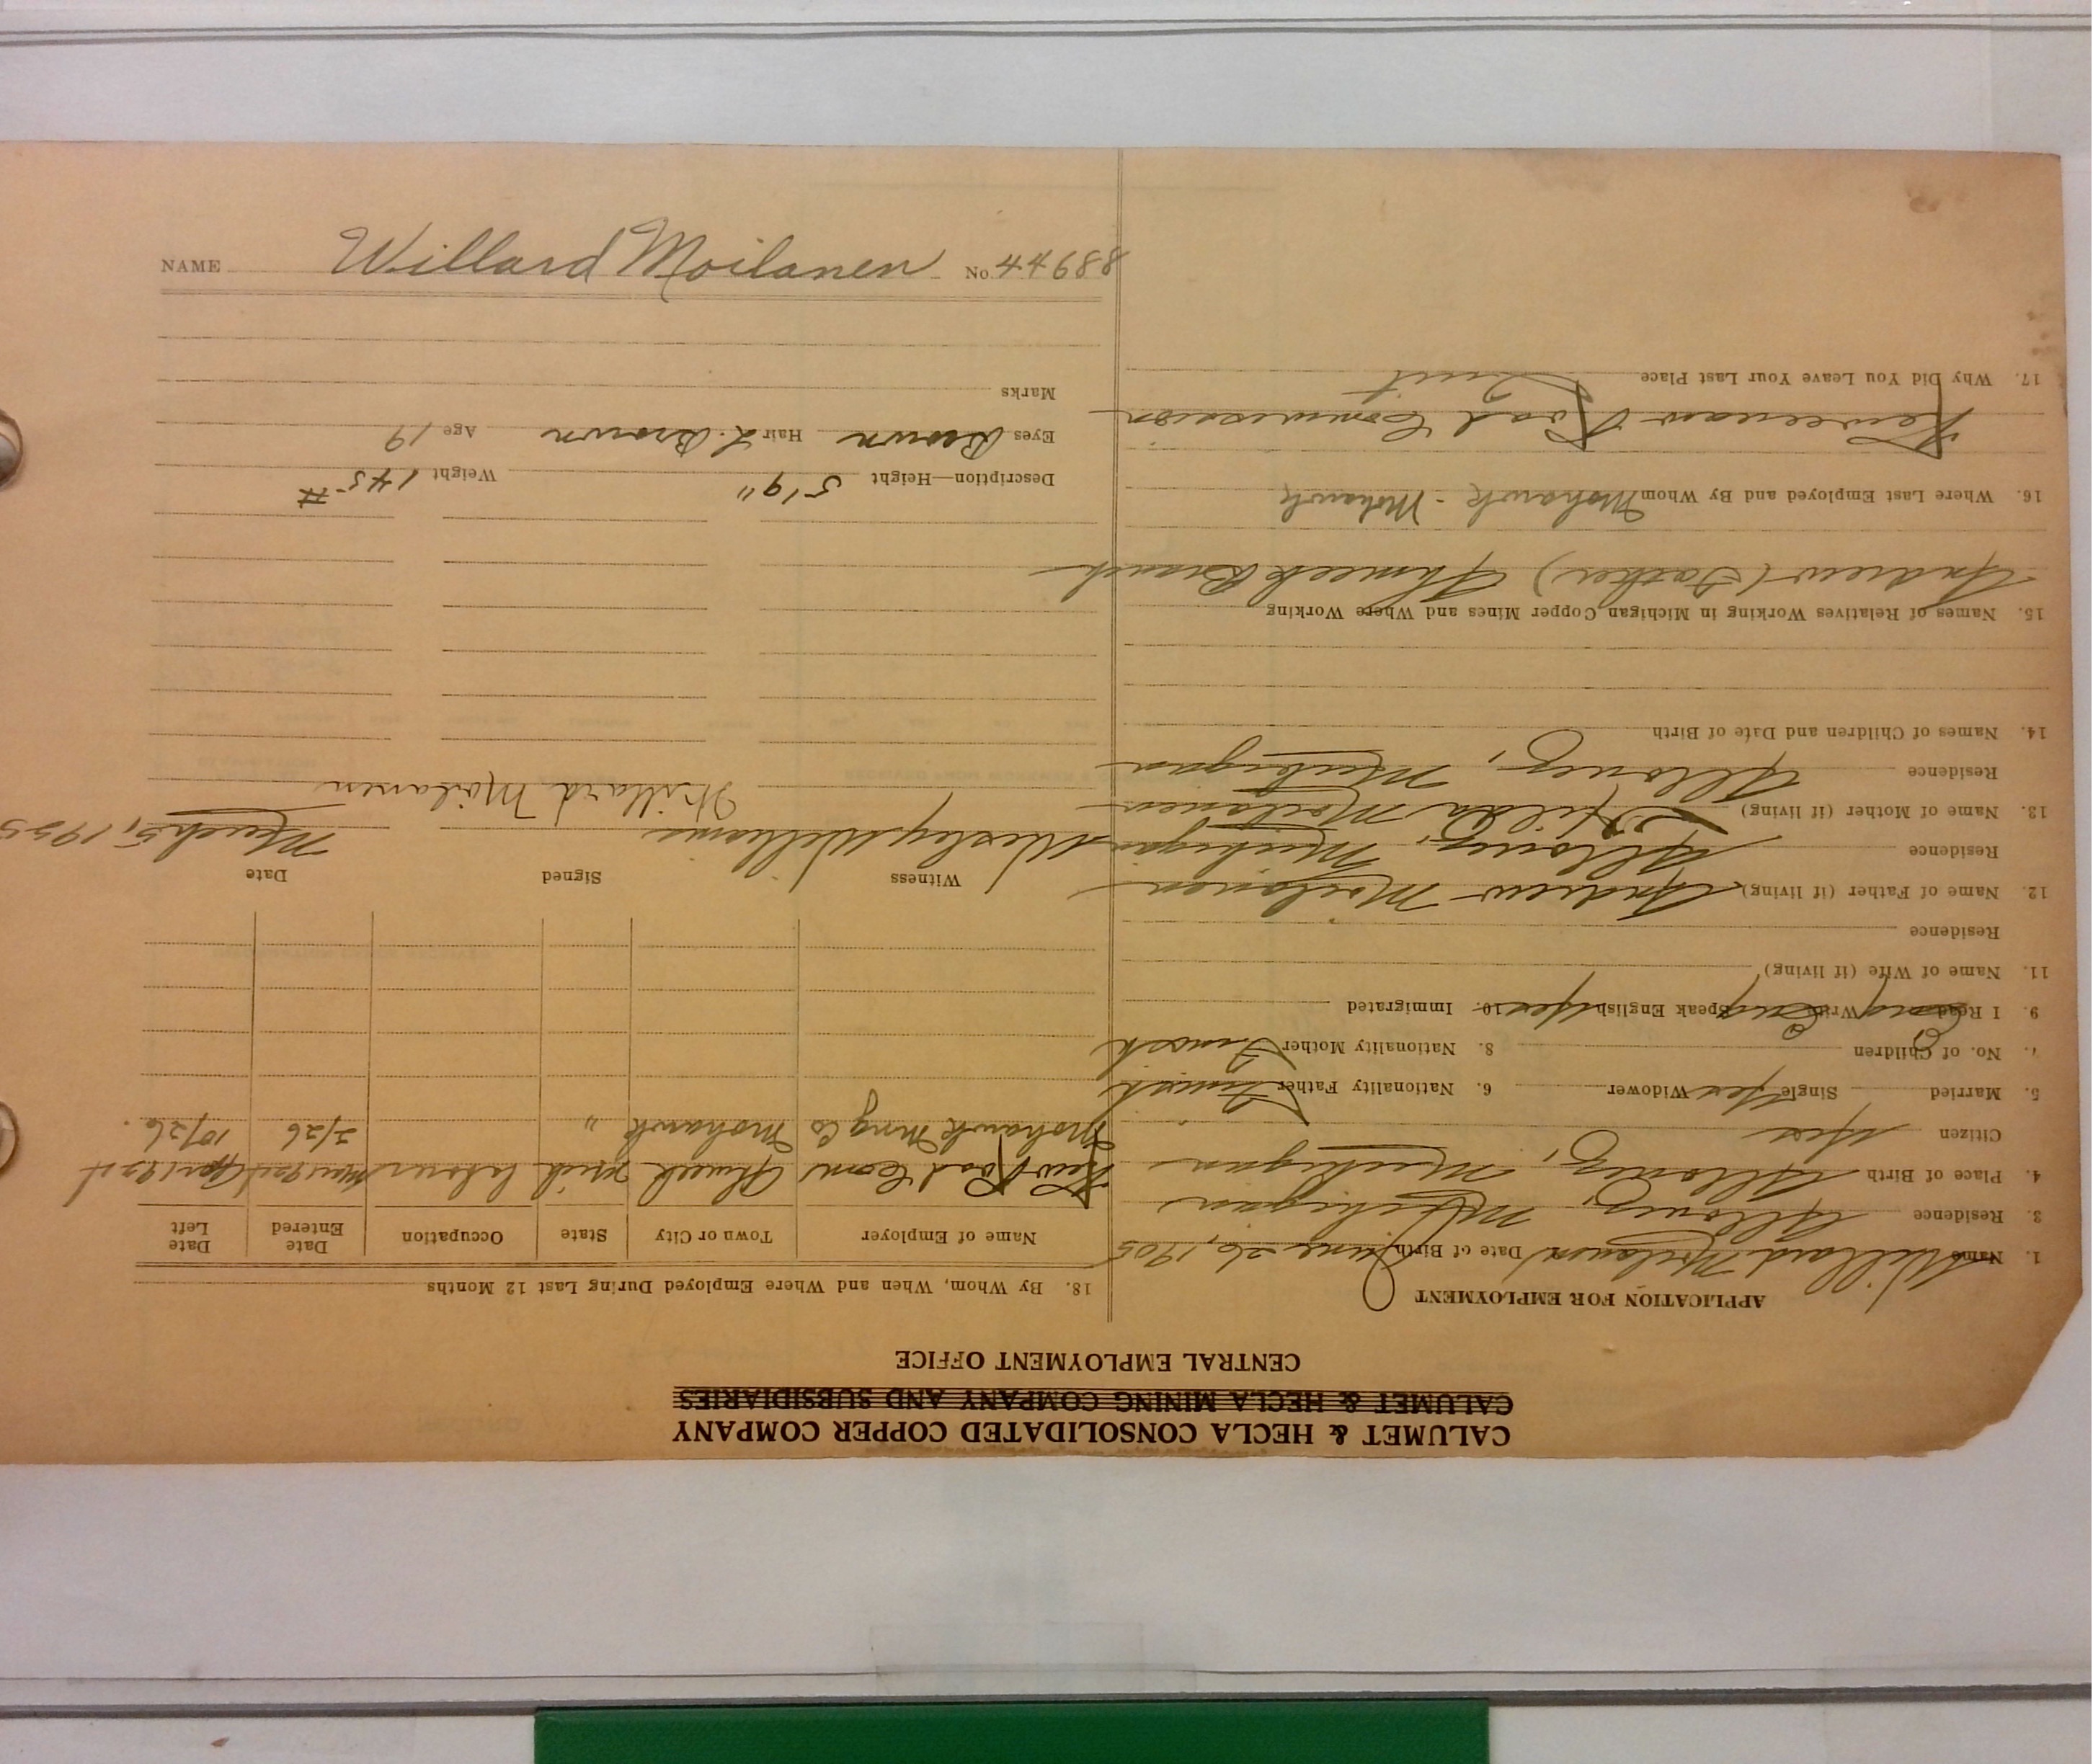 CALUMET & HECLA CONSOLIDATED COPPER COMPANY
CALUMET & HECLA MINING COMPANY AND SUBSIDIARIES
CENTRAL EMPLOYMENT OFFICE
APPLICATION FOR EMPLOYMENT
1. Name Willard Moilanen Date of Birth June 26, 1905
3. Residence Allouez, Michigan
4. Place of Birth Allouez, Michigan
Citizen Yes
5. Married Single Yes Widower 6. Nationality Father Finnish
7. No. of Children 8. Nationality Mother Finnish
9. I Read Eng Write Eng Speak English Yes 10. Immigrated
11. Name of Wife (if living)
Residence
12. Name of Father (if living) Andrew Moilanen
Residence Allouez, Michigan
13. Name of Mother (if living) Hilda Moilanen
Residence Allouez, Michigan
14. Names of Children and Date of Birth
15. Names of Relatives Working in Michigan Copper Mines and Where Working
Andrew (Father) Ahmeek Branch
16. Where Last Employed and By Whom Mohawk - Mohawk
Keweenaw Road Commission
17. Why Did You Leave Your Last Place Quit
18. By Whom, When and Where Employed During Last 12 Months
Name of Employer Town or City State Occupation Date Entered Date Left
Kew Road Com Ahmeek Mich Laborer
Mohawk Mng Co Mohawk " 2/26 10/26.
Witness Signed Date
Wesley Williams Willard Moilanen March 5, 1925
Description—Height 5'9" Weight 145#
Eyes Brown Hair L. Brown Age 19
Marks
NAME Willard Moilanen No. 44688